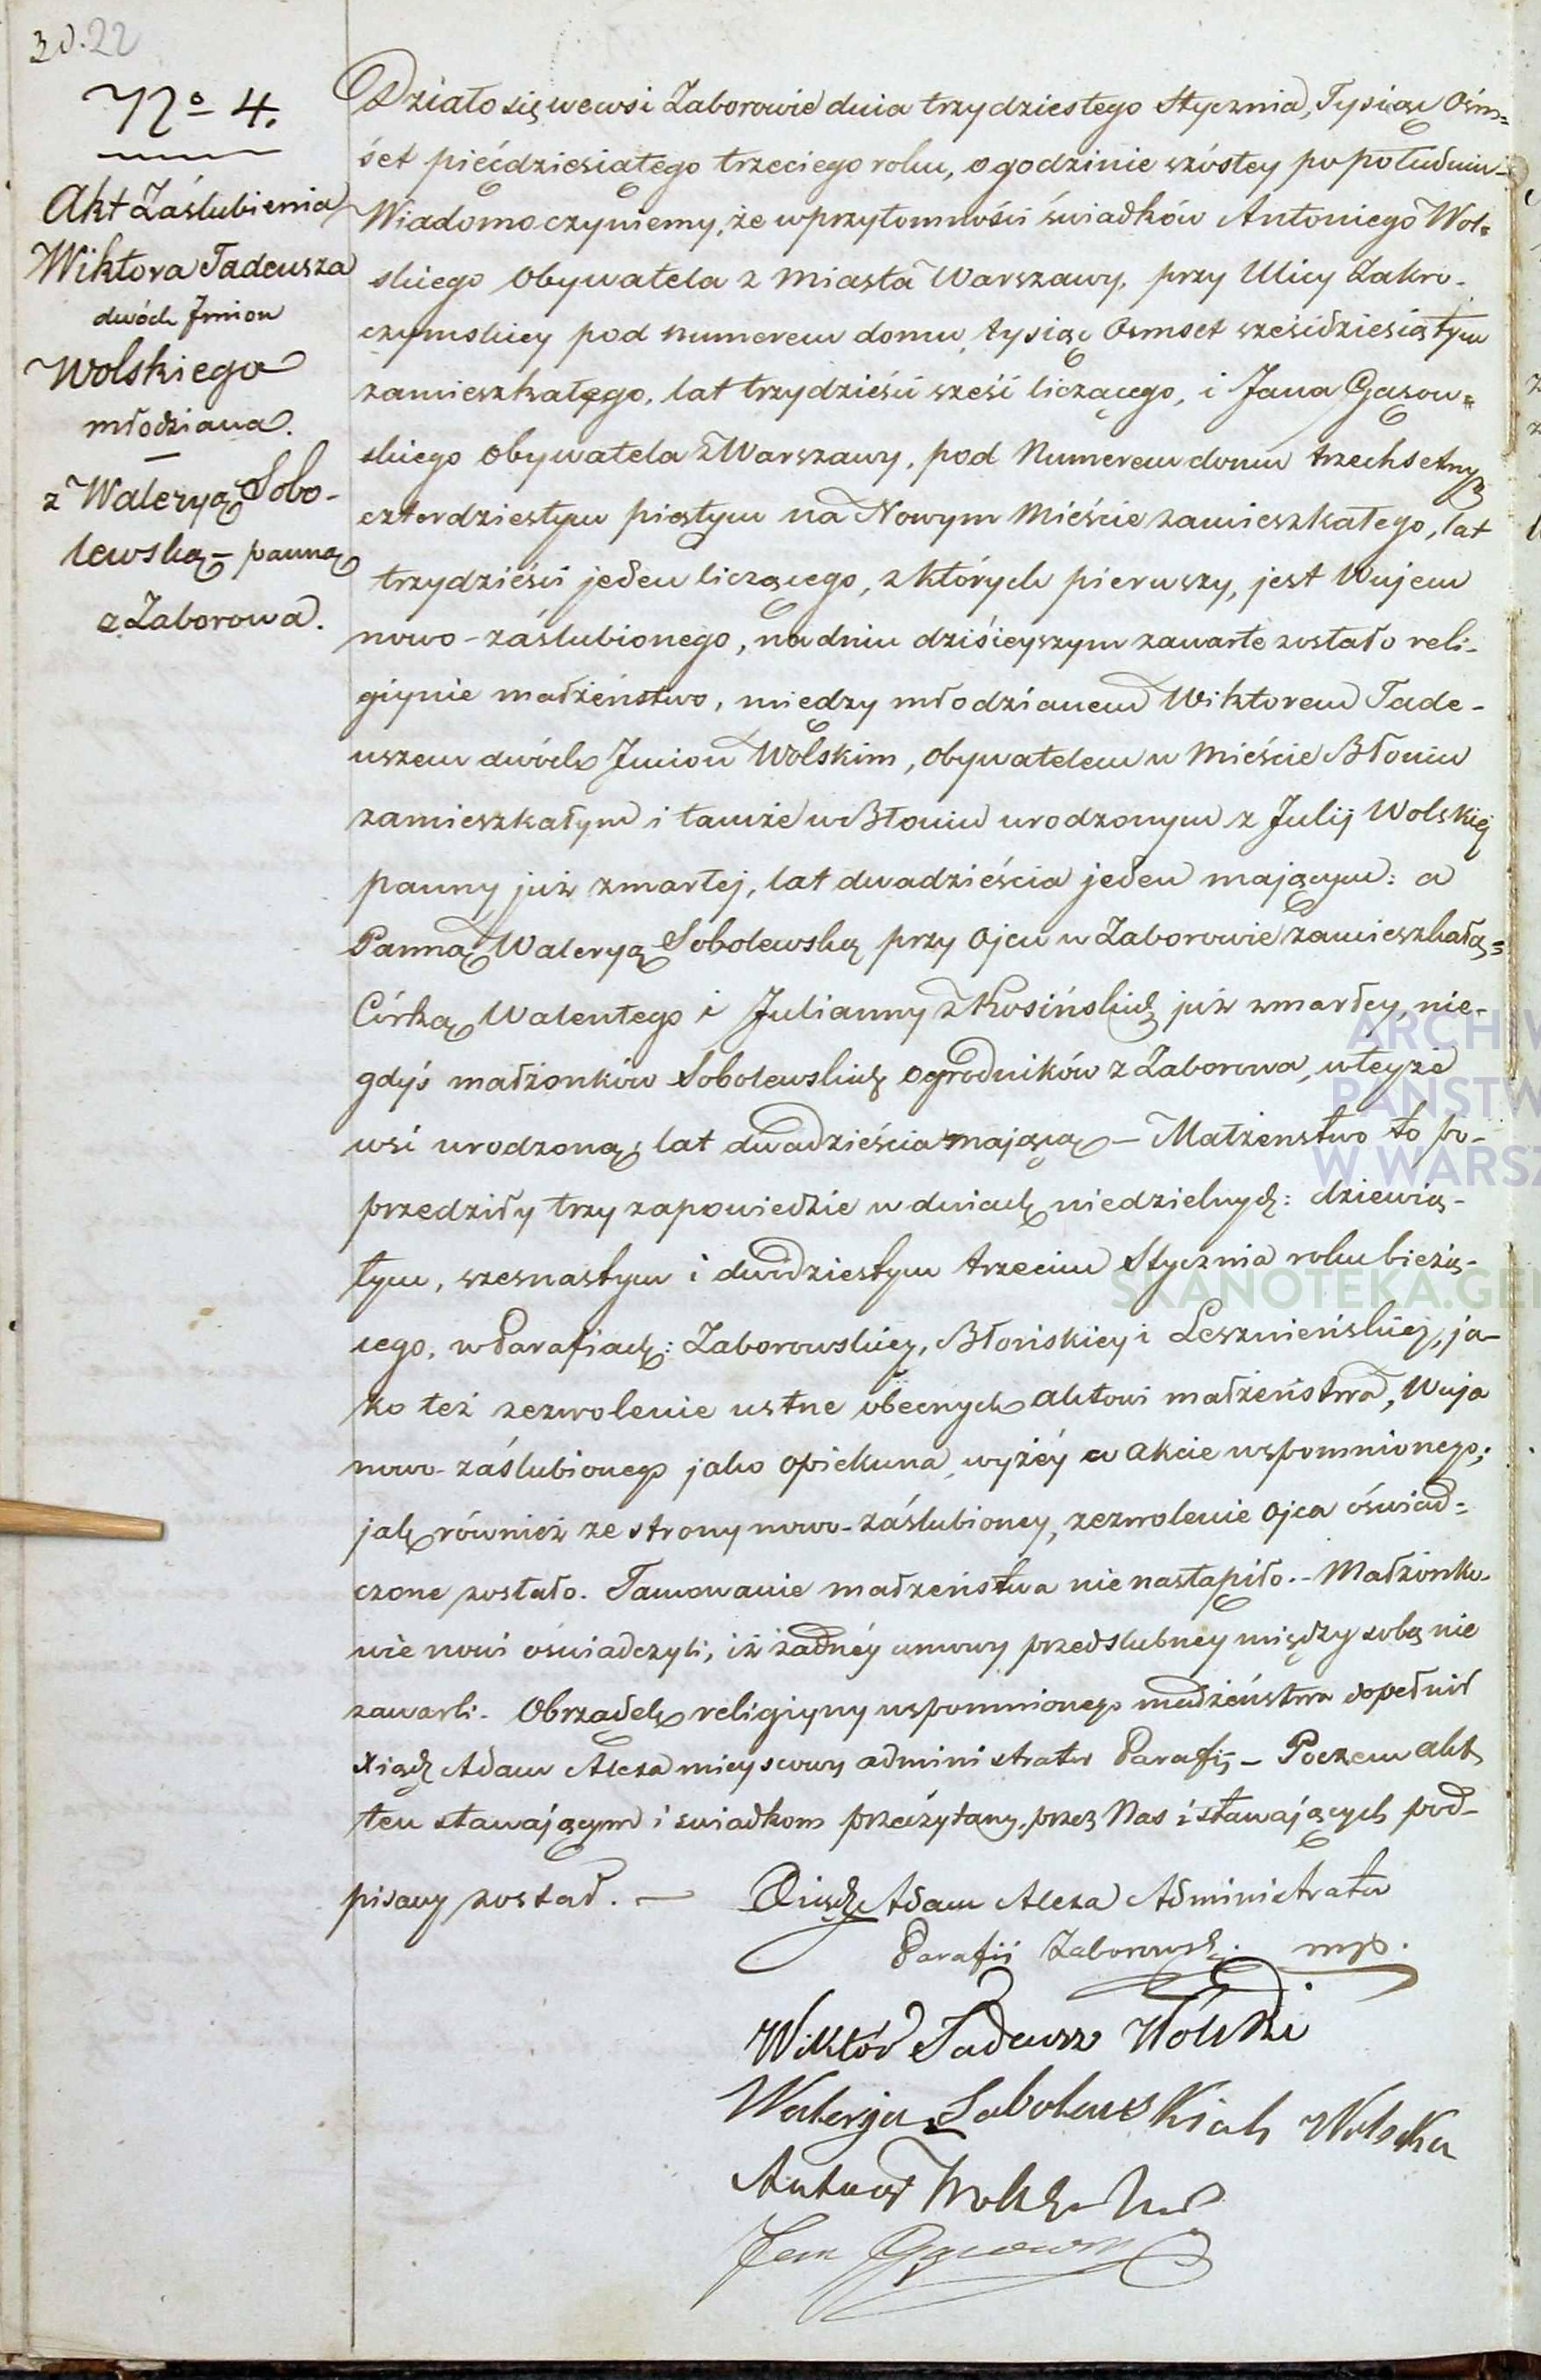 30.22
No 4.
Akt Zaślubienia
Wiktora Tadeusza
dwóch Imion
Wolskiego
młodziana.
z Waleryą Sobo-
lewską - panną
z Zaborowa.
Działo się we wsi Zaborowie dnia trzydziestego Stycznia, Tysiąc Ośm=
set pięćdziesiątego trzeciego roku, o godzinie szóstey po południu-
Wiadomo czyniemy, że w przytomności świadków Antoniego Wol-
skiego Obywatela z Miasta Warszawy, przy Ulicy Zakro-
czymskiey pod numerem domu tysiąc Ośmset sześćdziesiątym
zamieszkałego, lat trzydzieści sześć liczącego, i Jana Gąsow=
skiego Obywatela z Warszawy, pod Numerem domu trzechsetnym
czterdziestym piątym na Nowym Mieście zamieszkałego, lat
trzydzieści jeden liczącego, z których pierwszy, jest Wujem
nowo-zaślubionego, na dniu dzisieyszym zawarte zostało reli-
giynie małżeństwo, między młodzianem Wiktorem Tade-
uszem dwóch Imion Wolskim, Obywatelem w Mieście Błoniu
zamieszkałym i tamże w Błoniu urodzonym z Julij Wolskiej
panny już zmarłej, lat dwadzieścia jeden mającym: a
Panną Waleryą Sobolewską przy Ojcu w Zaborowie zamieszkałą=
Córką Walentego i Julianny z Kosińskich już zmarłey, nie-
gdyś małżonków Sobolewskich Ogrodników z Zaborowa, w teyże
wsi urodzoną, lat dwadzieścia mającą - Małżeństwo to po-
przedziły trzy zapowiedzie w dniach niedzielnych: dziewią-
tym, szesnastym i dwódziestym trzecim Stycznia roku bieżą-
cego, w Parafiach: Zaborowskiey, Błońskiey i Leszneńskiey, ja-
ko też zezwolenie ustne obecnych aktowi małżeństwa, Wuja
nowo-zaślubionego jako opiekuna, wyżéy w Akcie wspomnionego;
jak również ze strony nowo-zaślubioney, zezwolenie Ojca oświad=
czone zostało. Tamowanie małżeństwa nie nastąpiło.- Małżonko-
wie nowi oświadczyli, iż żadnéy umowy przedślubney między sobą nie
zawarli. Obrządek religiyny wspomnionego małżeństwa dopełnił
Xiądz Adam Alexa mieyscowy administrator Parafij - Poczem akt
ten stawającym i świadkom przeczytany, przez Nas i stawających pod-
pisany został. -
Xiądz Adam Alexa Administrator
Parafii Zaborowsk. mp.
Wiktór Tadeusz Wólski
Walerja Sobolewskich Wolska
Antoni Wolski
Jan Gąsowski
ARCHIW
PAŃSTW
W WARSZ
SKANOTEKA.GEN